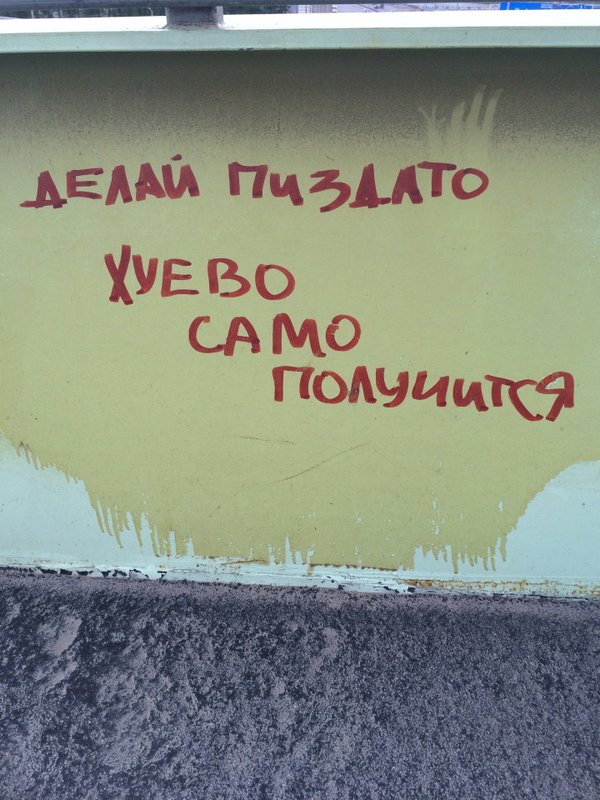 ДЕЛАЙ ПИЗДАТО
ХУЕВО
САМО
ПОЛУЧИТСЯ